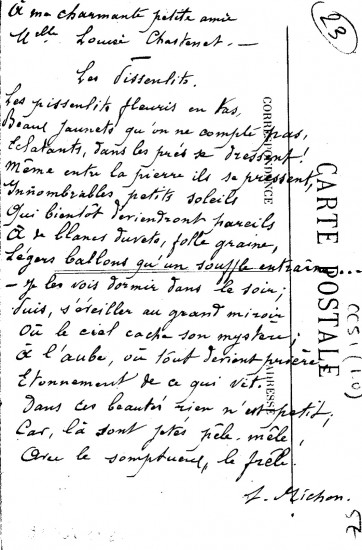 À ma charmante petite amie
Melle Louise Chastenet. —
Les Pissenlits.
Les pissenlits fleuris en tas,
Beaux jaunets qu'on ne compte pas,
Eclatants, dans les prés se dressent!
Même entre la pierre ils se pressent,
Innombrables petits soleils
Qui bientôt deviendront pareils
À de blancs duvets, folle graine,
Légers ballons qu'un souffle entraîne...
– Je les vois dormir dans le soir;
Puis, s'éveiller au grand miroir
Où le ciel cache son mystère;
À l'aube, où tout devient prière
Etonnement de ce qui vit.
Dans ces beautés rien n'est petit;
Car, là sont jetés pêle-mêle
Avec le somptueux, le frêle.
Michon.
CARTE POSTALE
CORRESPONDANCE
ADRESSE
23
52